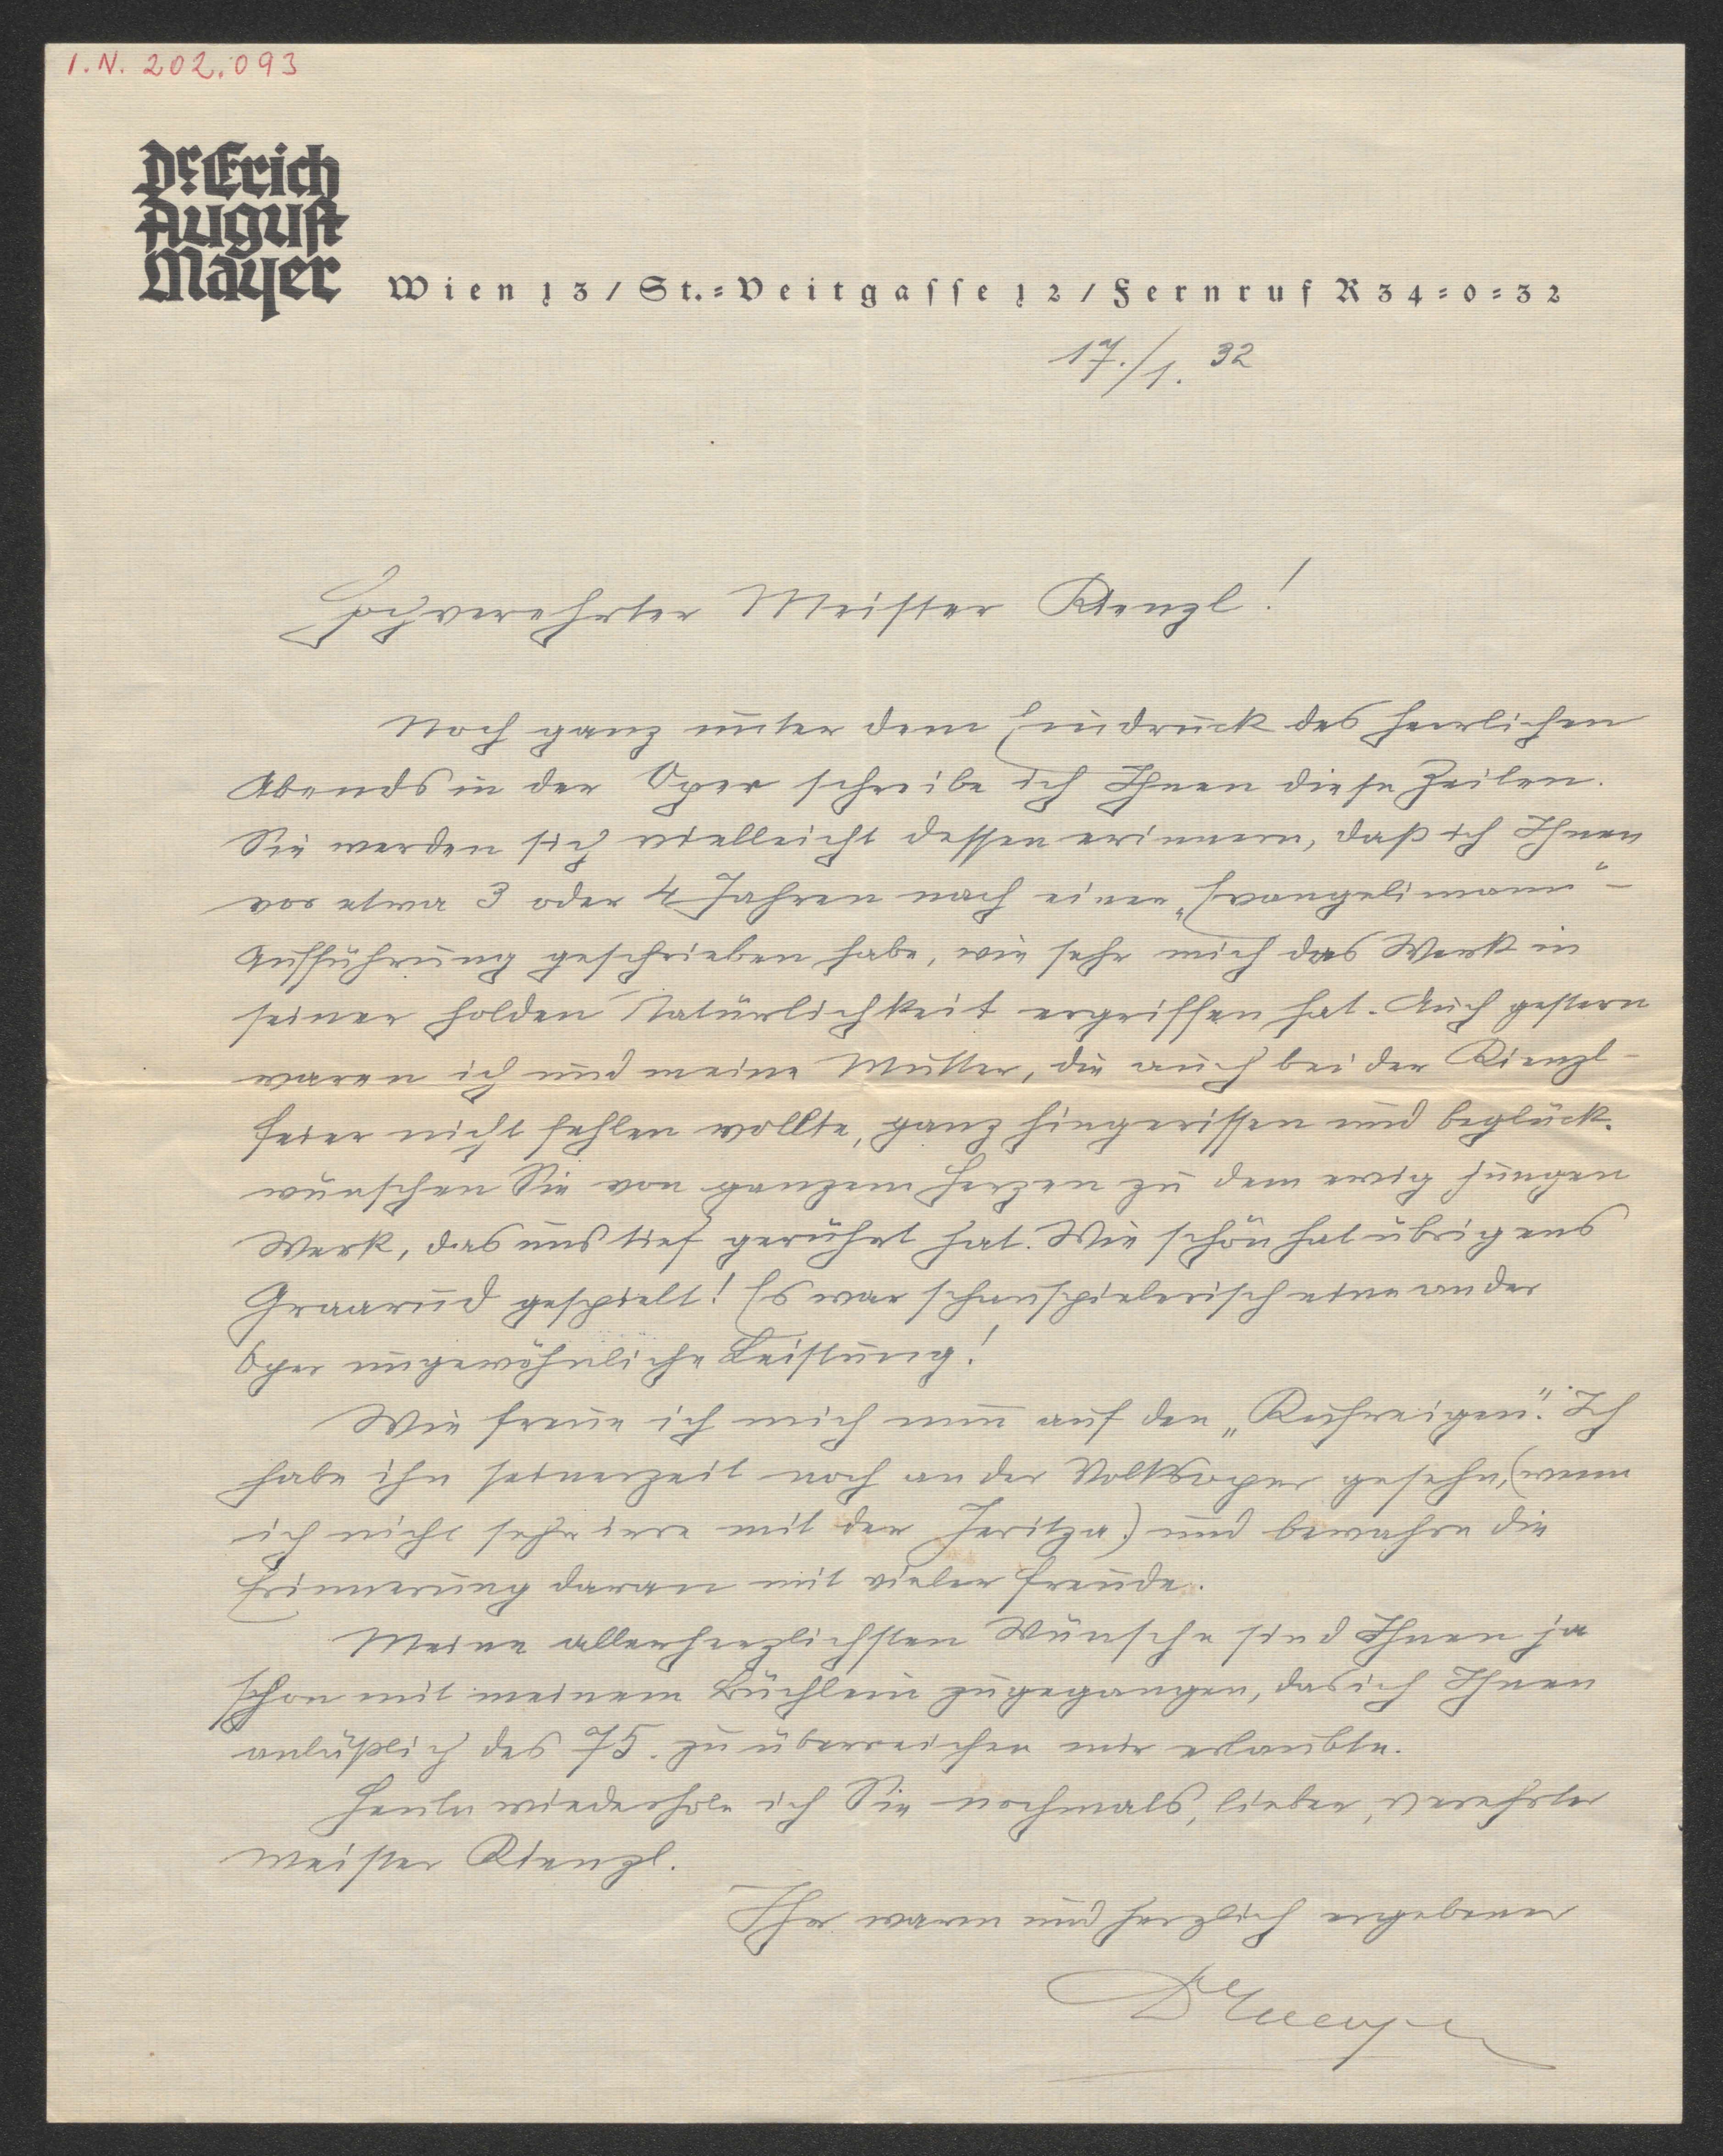 I.N. 202.093
Dr. Erich
August
Mayer
Wien 13 / St.=Veitgasse 12 / Fernruf R 34=0=32
17./1. 32
Hochverehrter Meister Kienzl!
Noch ganz unter dem Eindruck des herrlichen
Abends in der Oper schreibe ich Ihnen diese Zeilen.
Sie werden sich vielleicht dessen erinnern, daß ich Ihnen
vor etwa 3 oder 4 Jahren nach einer „Evangelimann“-
Aufführung geschrieben habe, wie sehr mich das Werk in
seiner holden Natürlichkeit ergriffen hat. Auch gestern
waren ich und meine Mutter, die auch bei der Kienzl-
feier nicht fehlen wollte, ganz hingerissen und beglück-
wünschen Sie von ganzem Herzen zu dem ewig jungen
Werk, das uns tief gerührt hat. Wie schön hat übrigens
Graarud gespielt! Es war schauspielerisch eine an der
Oper ungewöhnliche Leistung!
Wie freue ich mich nun auf den „Kuhreigen“. Ich
habe ihn seinerzeit noch an der Volksoper gesehn, (wenn
ich nicht sehr irre mit der Jeritza) und bewahre die
Erinnerung daran mit vieler Freude.
Meine allerherzlichsten Wünsche sind Ihnen ja
schon mit meinem Büchlein zugegangen, das ich Ihnen
anläßlich des 75. zu überreichen mir erlaubte.
Heute wiederhole ich Sie nochmals, lieber, verehrter
Meister Kienzl.
Ihr warm und herzlich ergebener
Dr EAMayer